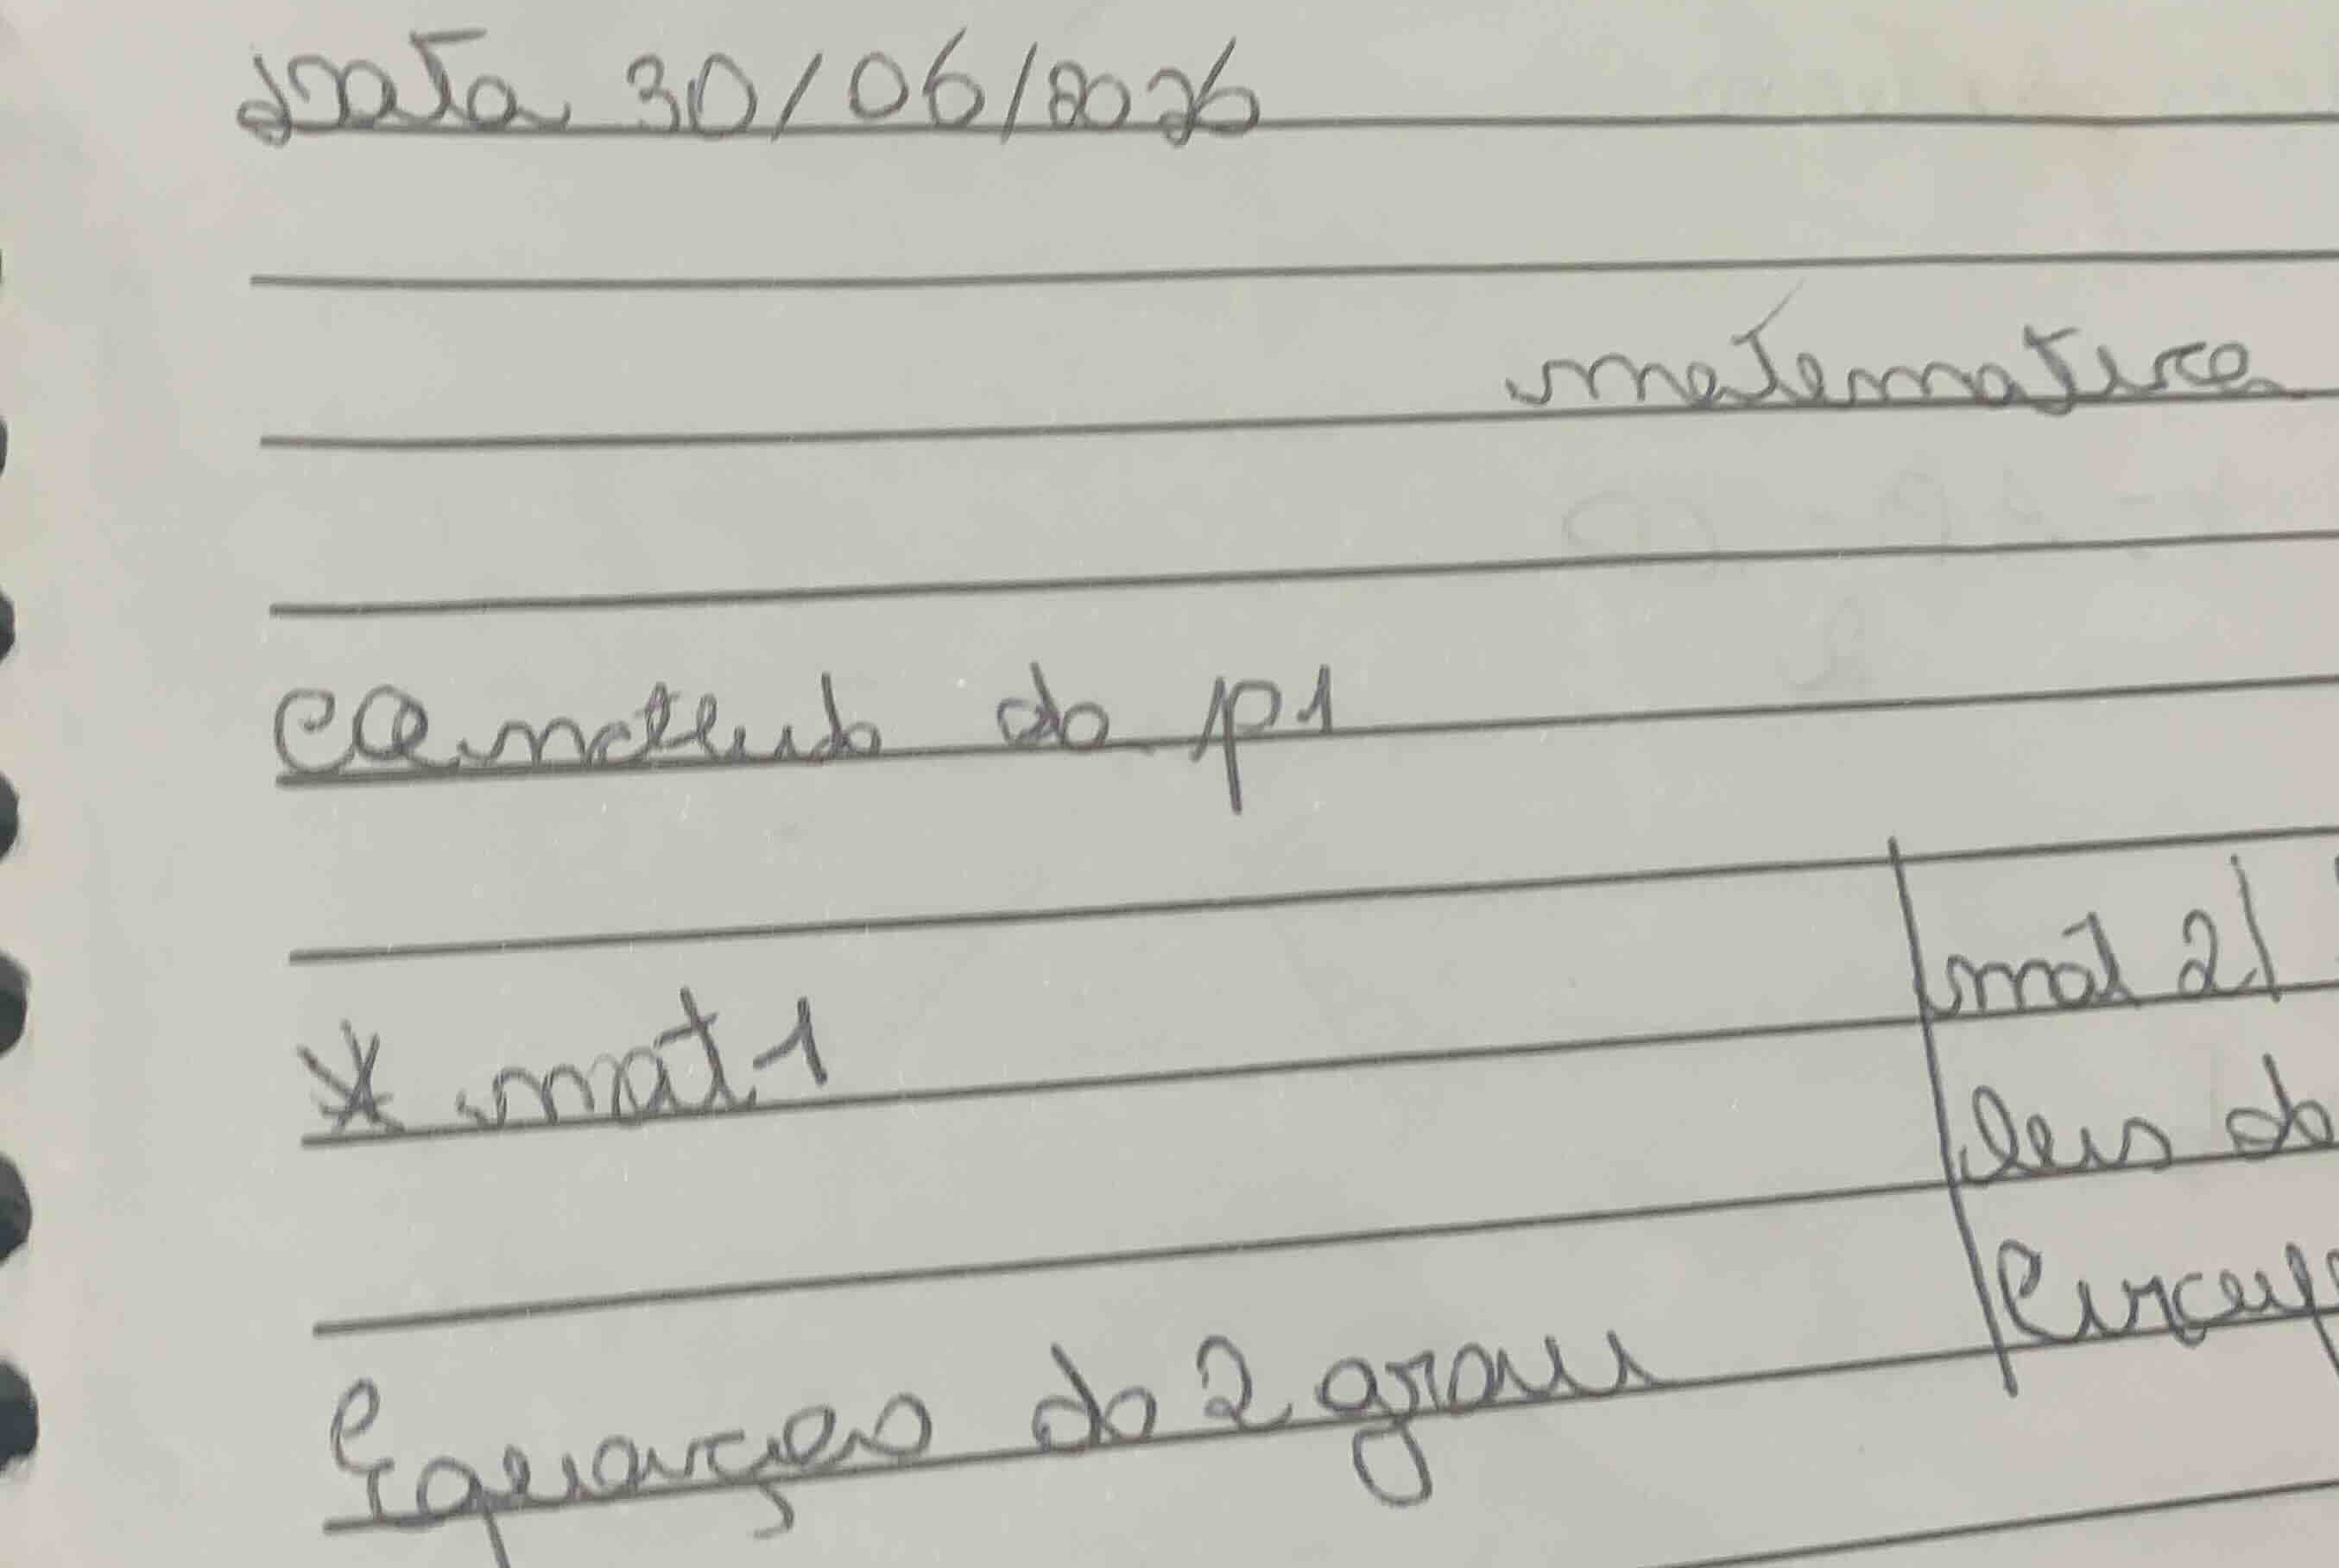 Data 30/06/2026
matematica
Conteudo do p1
* mat 1
mat 2
leis do
Equações do 2 grau